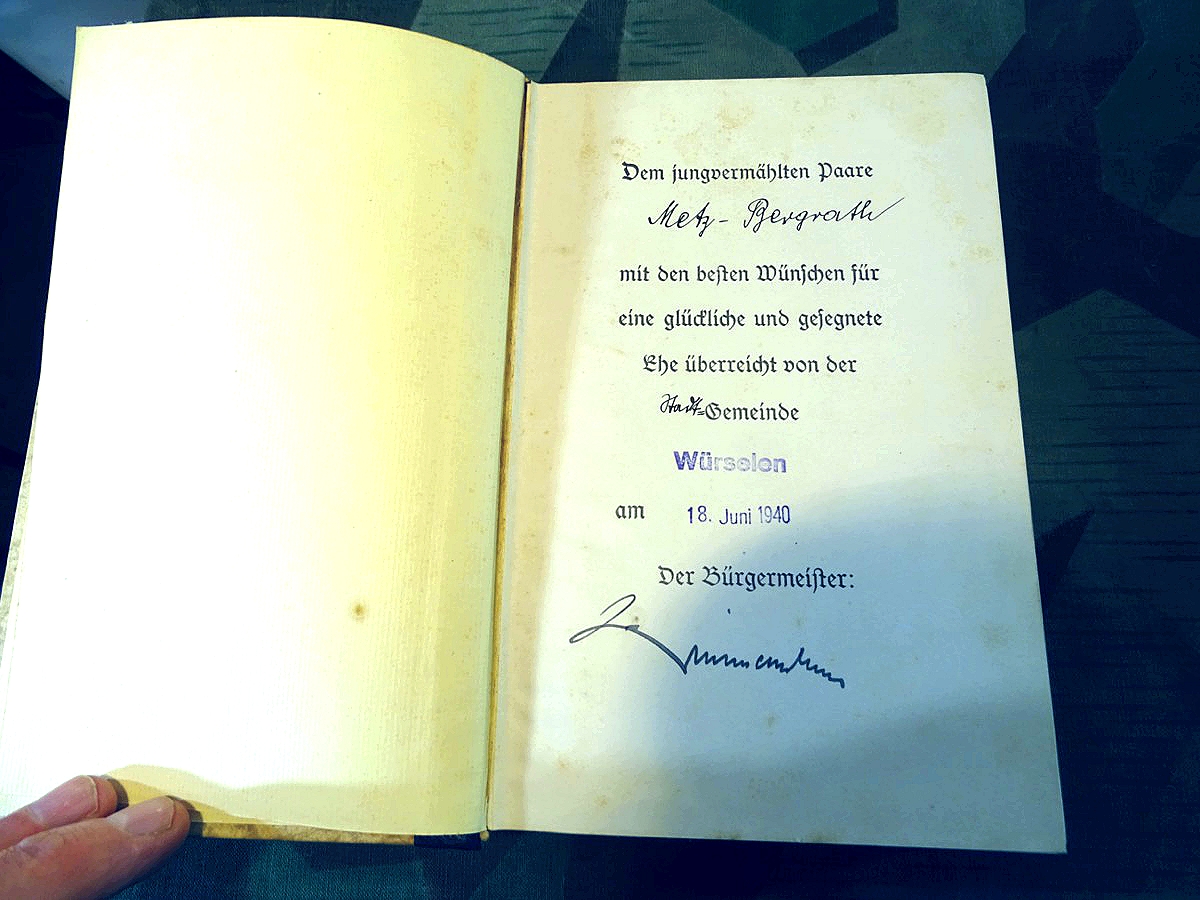 Dem jungvermählten Paare
Metz - Bergrath
mit den besten Wünschen für
eine glückliche und gesegnete
Ehe überreicht von der
Stadt=Gemeinde
Würselen
am 18. Juni 1940
Der Bürgermeister: